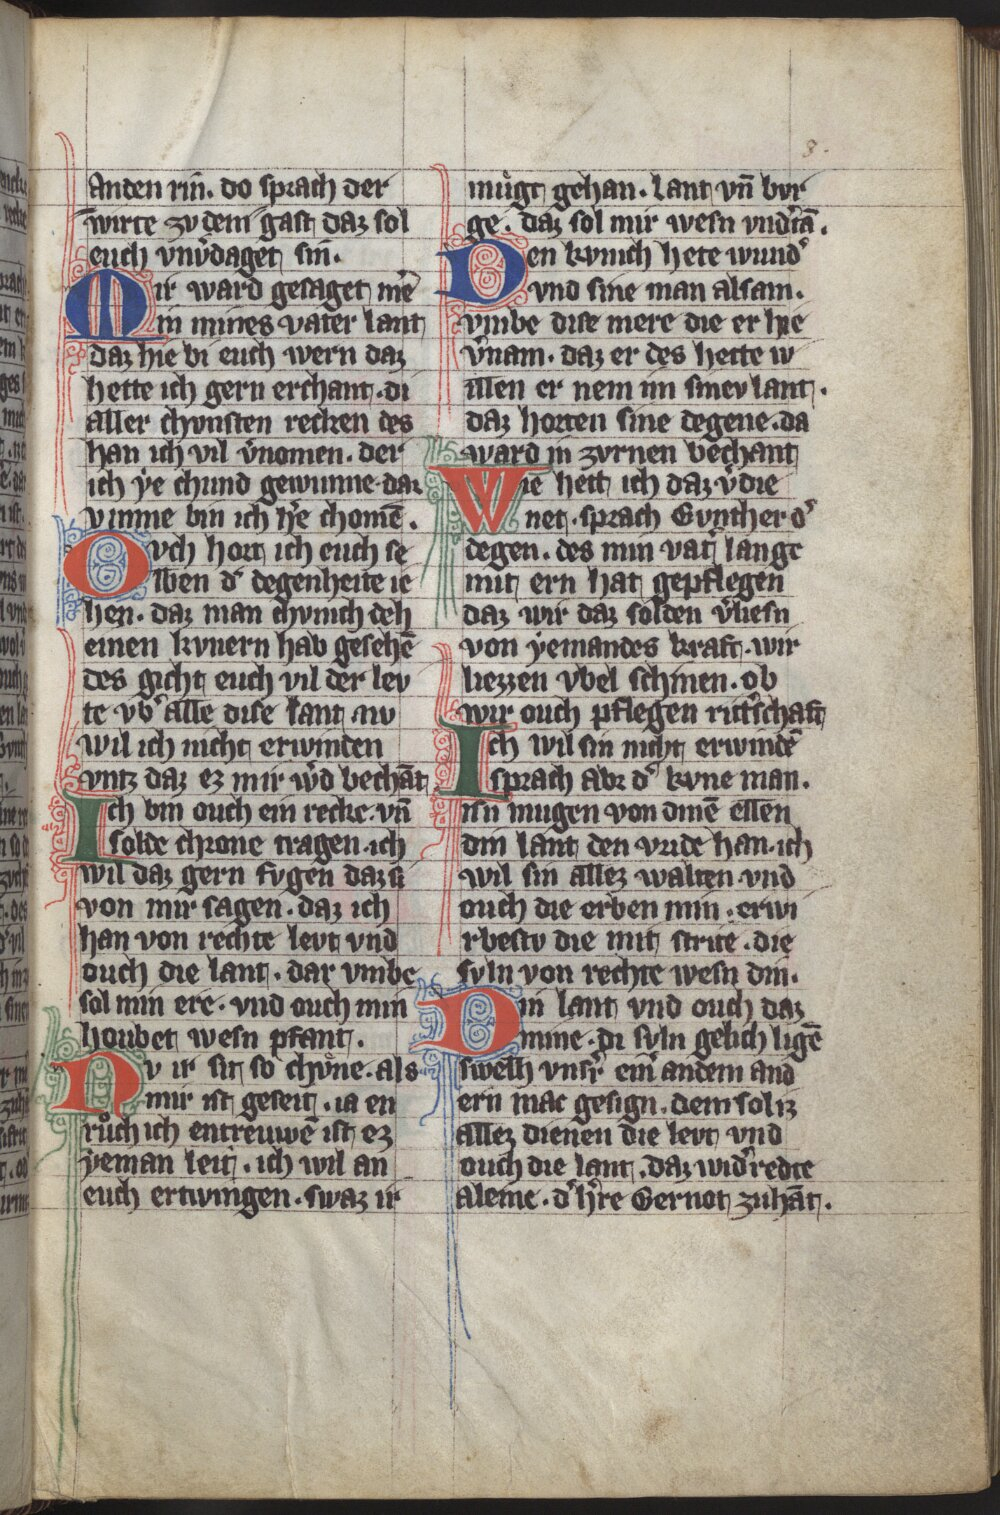 8.
anden rin. do sprach der
wirte zv dem gast daz sol
euch vnv̉daget sin.
Mir ward gesaget me᷑
in mines vater lant
daz hie bi euch wern daz
hette ich gern erchant. di
aller chvnsten recken des
han ich vil v̉nomen. der
ich ẏe chund gewunne. dar
vmme bin ich hẏe chomē.
Ovch hort ich euch se
lben d᷑ degenheite ie
hen. daz man chvnich deh
einen kvnern hab gesehē
des gicht euch vil der lev
te vb᷑ alle dise lant. nv
wil ich nicht erwinden
vntz daz ez mir w᷑d bechāt
Ich bin ouch ein recke. vn̄
solde chrone tragen. ich
wil daz gern fvgen daz si
von mir sagen. daz ich
han von rechte levt vnd
ouch die lant. dar vmbe
sol min ere. vnd ouch min
houbet wesn pfant.
Nv ir sit so chvͦne. als
mir ist geseit. ia en
růch ich entreuwē ist ez
ẏeman leit. ich wil an
euch ertwingen. swaz ir
můgt gehan. lant vn̄ bvr
ge. daz sol mir wesn vnd᷑tā.
Den kvnich hete wund᷑
vnd sine man alsam.
vmbe dise mere die er hie
v᷑nam. daz er des hette w
illen er nem im sinev lant.
daz horten sine degene. da
ward in zvrnen bechant
Wie hett ich daz v᷑die
net. sprach Gvnther d᷑
degen. des min vat᷑ lange
mit ern hat gepflegen
daz wir daz solden v᷑liesn
von ẏemandes kraft. wir
liezzen vbel schinen. ob
wir ouch pflegen ritt᷑schaft
Ich wil sin nicht erwindē
sprach abr d᷑ kvne man.
n᷑n mugen von dinē ellen
din lant den vride han. ich
wil sin allez walten. vnd
ouch die erben min. erwi
rbestv die mit strite. die
svln von rechte wesn din.
Din lant vnd ouch daz
mine. di svln gelich ligē
swelh vnſ᷑r ein᷑ andem and
ern mac gesign. dem sol iz
allez dienen die levt vnd
ouch die lant. daz wid᷑redte
aleine. d᷑ h᷑re Gernot zuhāt.